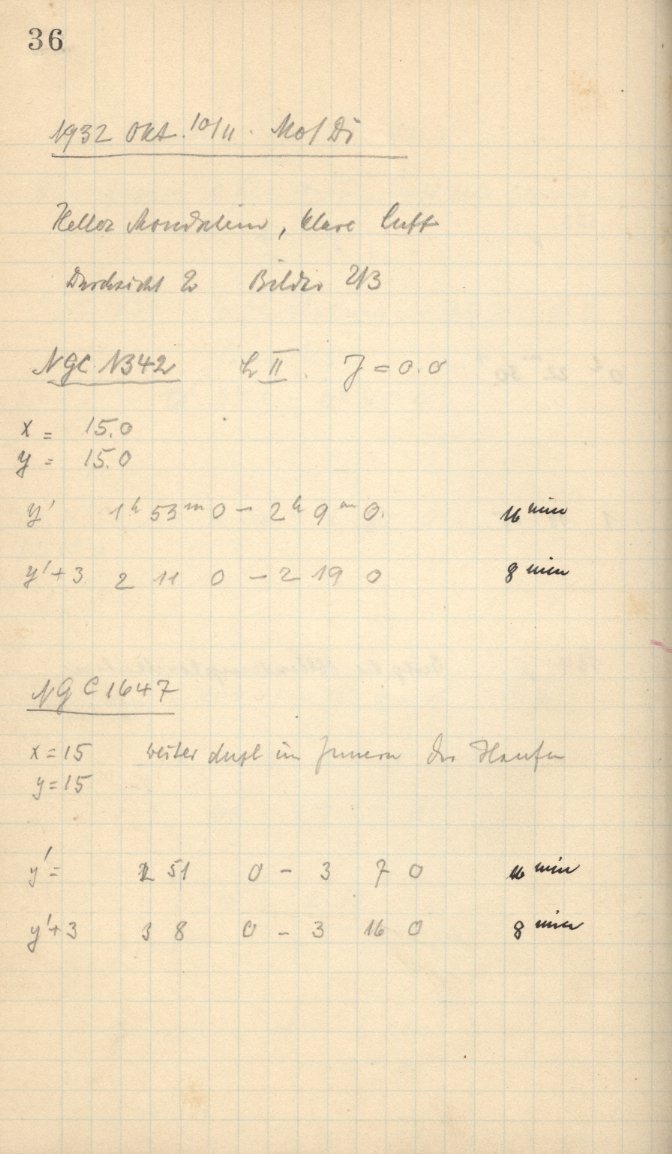 36
1932 Okt. 10/11. Mo/Di
Heller Mondschein, klare Luft
Durchsicht 2 Bilder 2/3
NGC 1342 II. J = 0.0
x = 15.0
y = 15.0
y' 1h 53m 0 - 2h 9m 0. 16 min
y'+3 2 11 0 - 2 19 0 8 min
NGC 1647
x = 15 weiter im Innern des Haufen
y = 15
y' = 2 51 0 - 3 7 0 16 min
y'+3 3 8 0 - 3 16 0 8 min